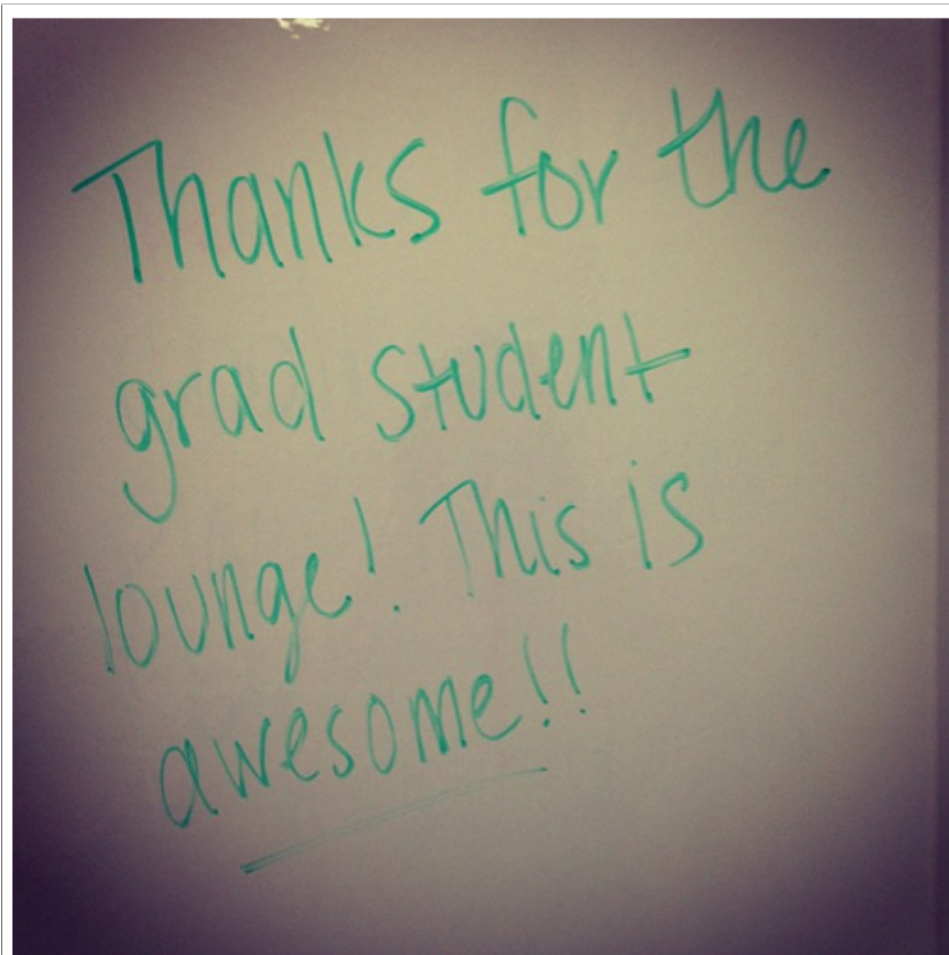 Thanks for the
grad student
lounge! This is
awesome!!